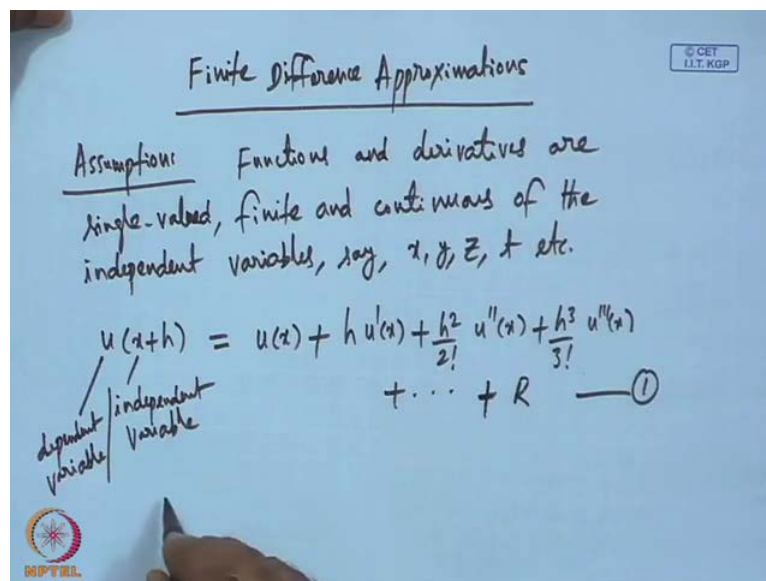 Finite Difference Approximations
© CET
I.I.T. KGP
Assumptions Functions and derivatives are
single-valued, finite and continuous of the
independent variables, say, x, y, z, t etc.
u(x+h) = u(x) + h u'(x) + h²/2! u''(x) + h³/3! u'''(x)
+ ··· + R —— ①
dependent variable
independent variable
NPTEL